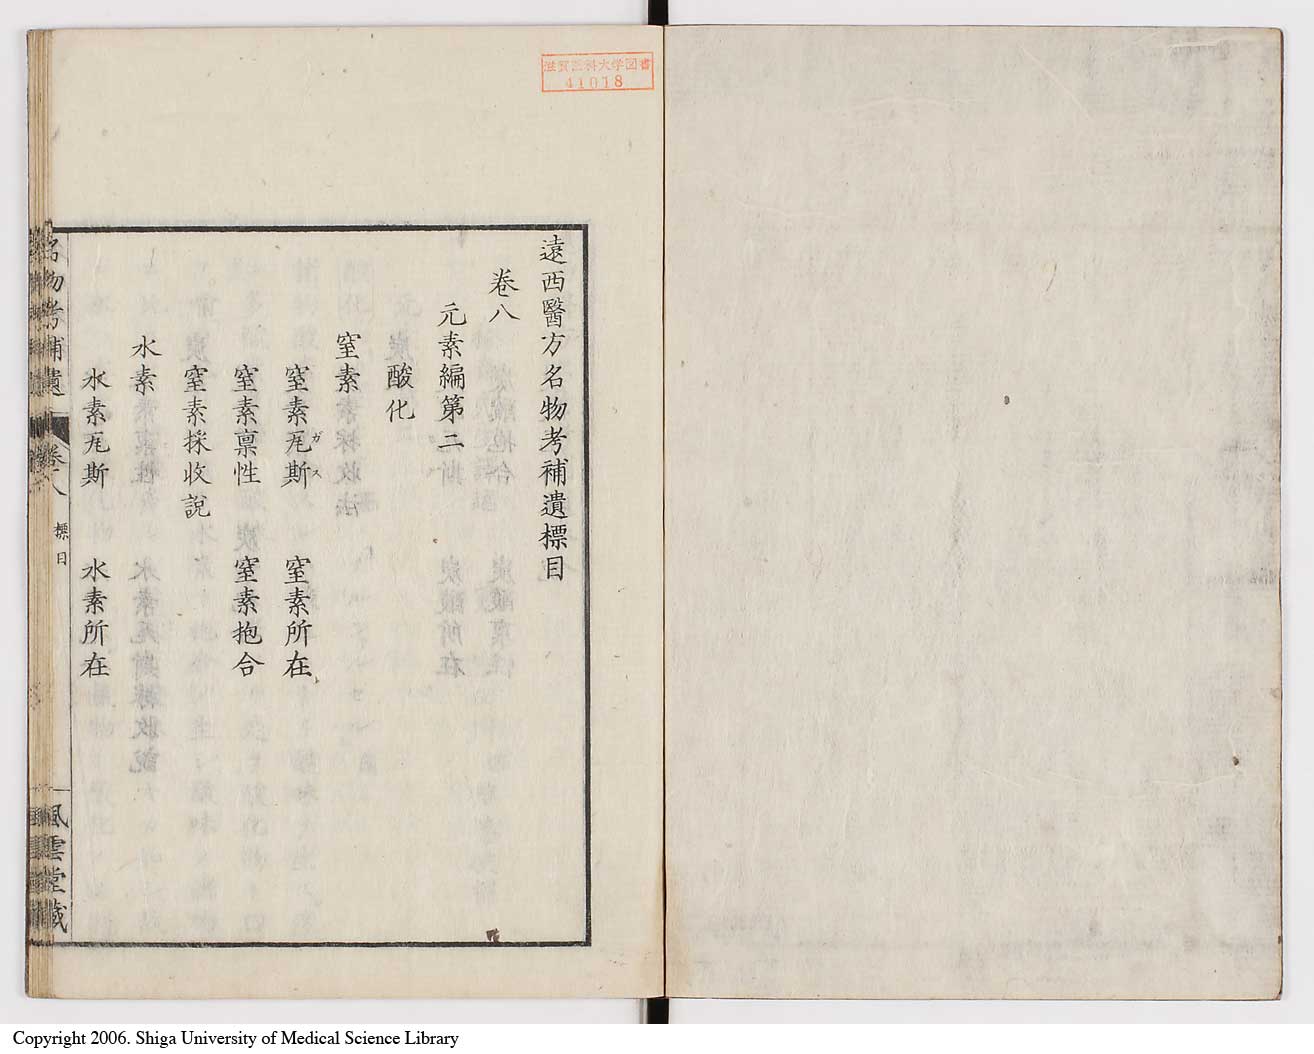 滋賀医科大学図書
41018
遠西醫方名物考補遺標目
卷八
元素編第二
酸化
窒素
窒素瓦斯 ガス 窒素所在
窒素稟性 窒素抱合
窒素採收說
水素
水素瓦斯 水素所在
名物考補遺 卷八 標目 風雲堂藏
Copyright 2006. Shiga University of Medical Science Library